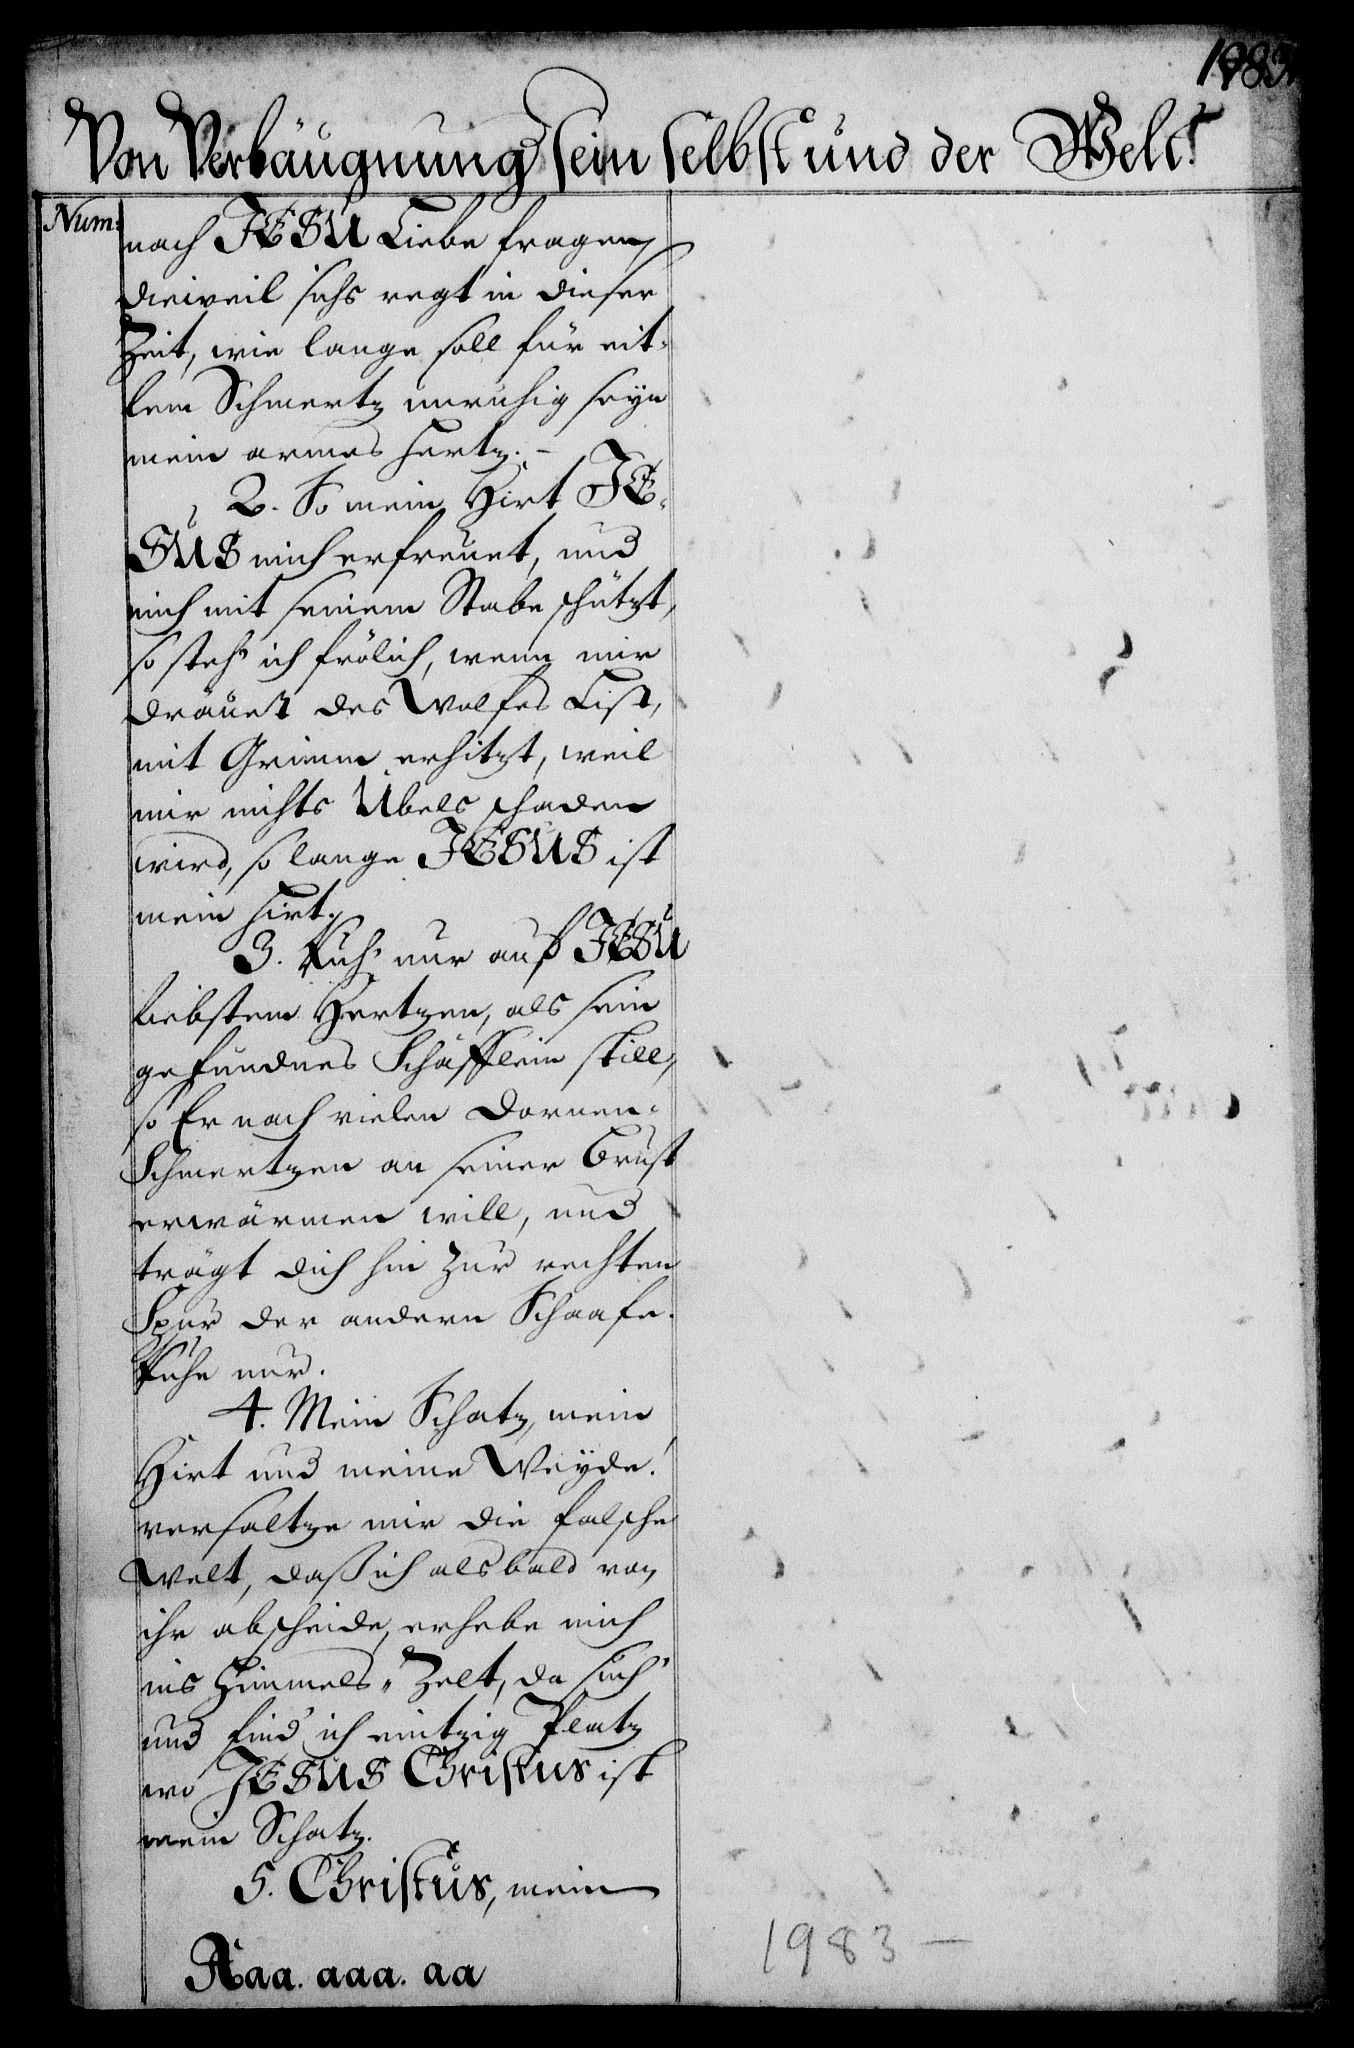 1983.
Von Verläugnung sein selbst und der Welt.
Num:
nach JESU Liebe fragen,
dieweil sichs regt in dieser
Zeit, wie lange soll für eit-
lem Schmertz unruhig seyn
mein armes Hertz. –
2. So mein Hirt JE-
SUS mich erfreuet, und
mich mit seinem Stabe schützt,
so steh' ich frölich, wenn mir
dräuet des Wolfes List,
mit Grimm erhitzt, weil
mir nichts Übels schaden
wird, so lange JESUS ist
mein Hirt.
3. Ruh' nur auf JESU
liebstem Hertzen, als sein
gefundnes Schäfflein still,
so Er nach vielen Dornen-
Schmertzen an seiner Brust
erwärmen will, und
trägt dich hin zur rechten
Spur der andern Schaafe.
Ruhe nur.
4. Mein Schatz, mein
Hirt und meine Weyde!
versaltze mir die falsche
Welt, daß ich alsbald von
ihr abscheide, erhebe mich
ins Himmels-Zelt, da such'
und find' ich eintzig Platz
wo JESUS Christus ist
mein Schatz.
5. Christus, mein
Aaa. aaa. aa
1983 –